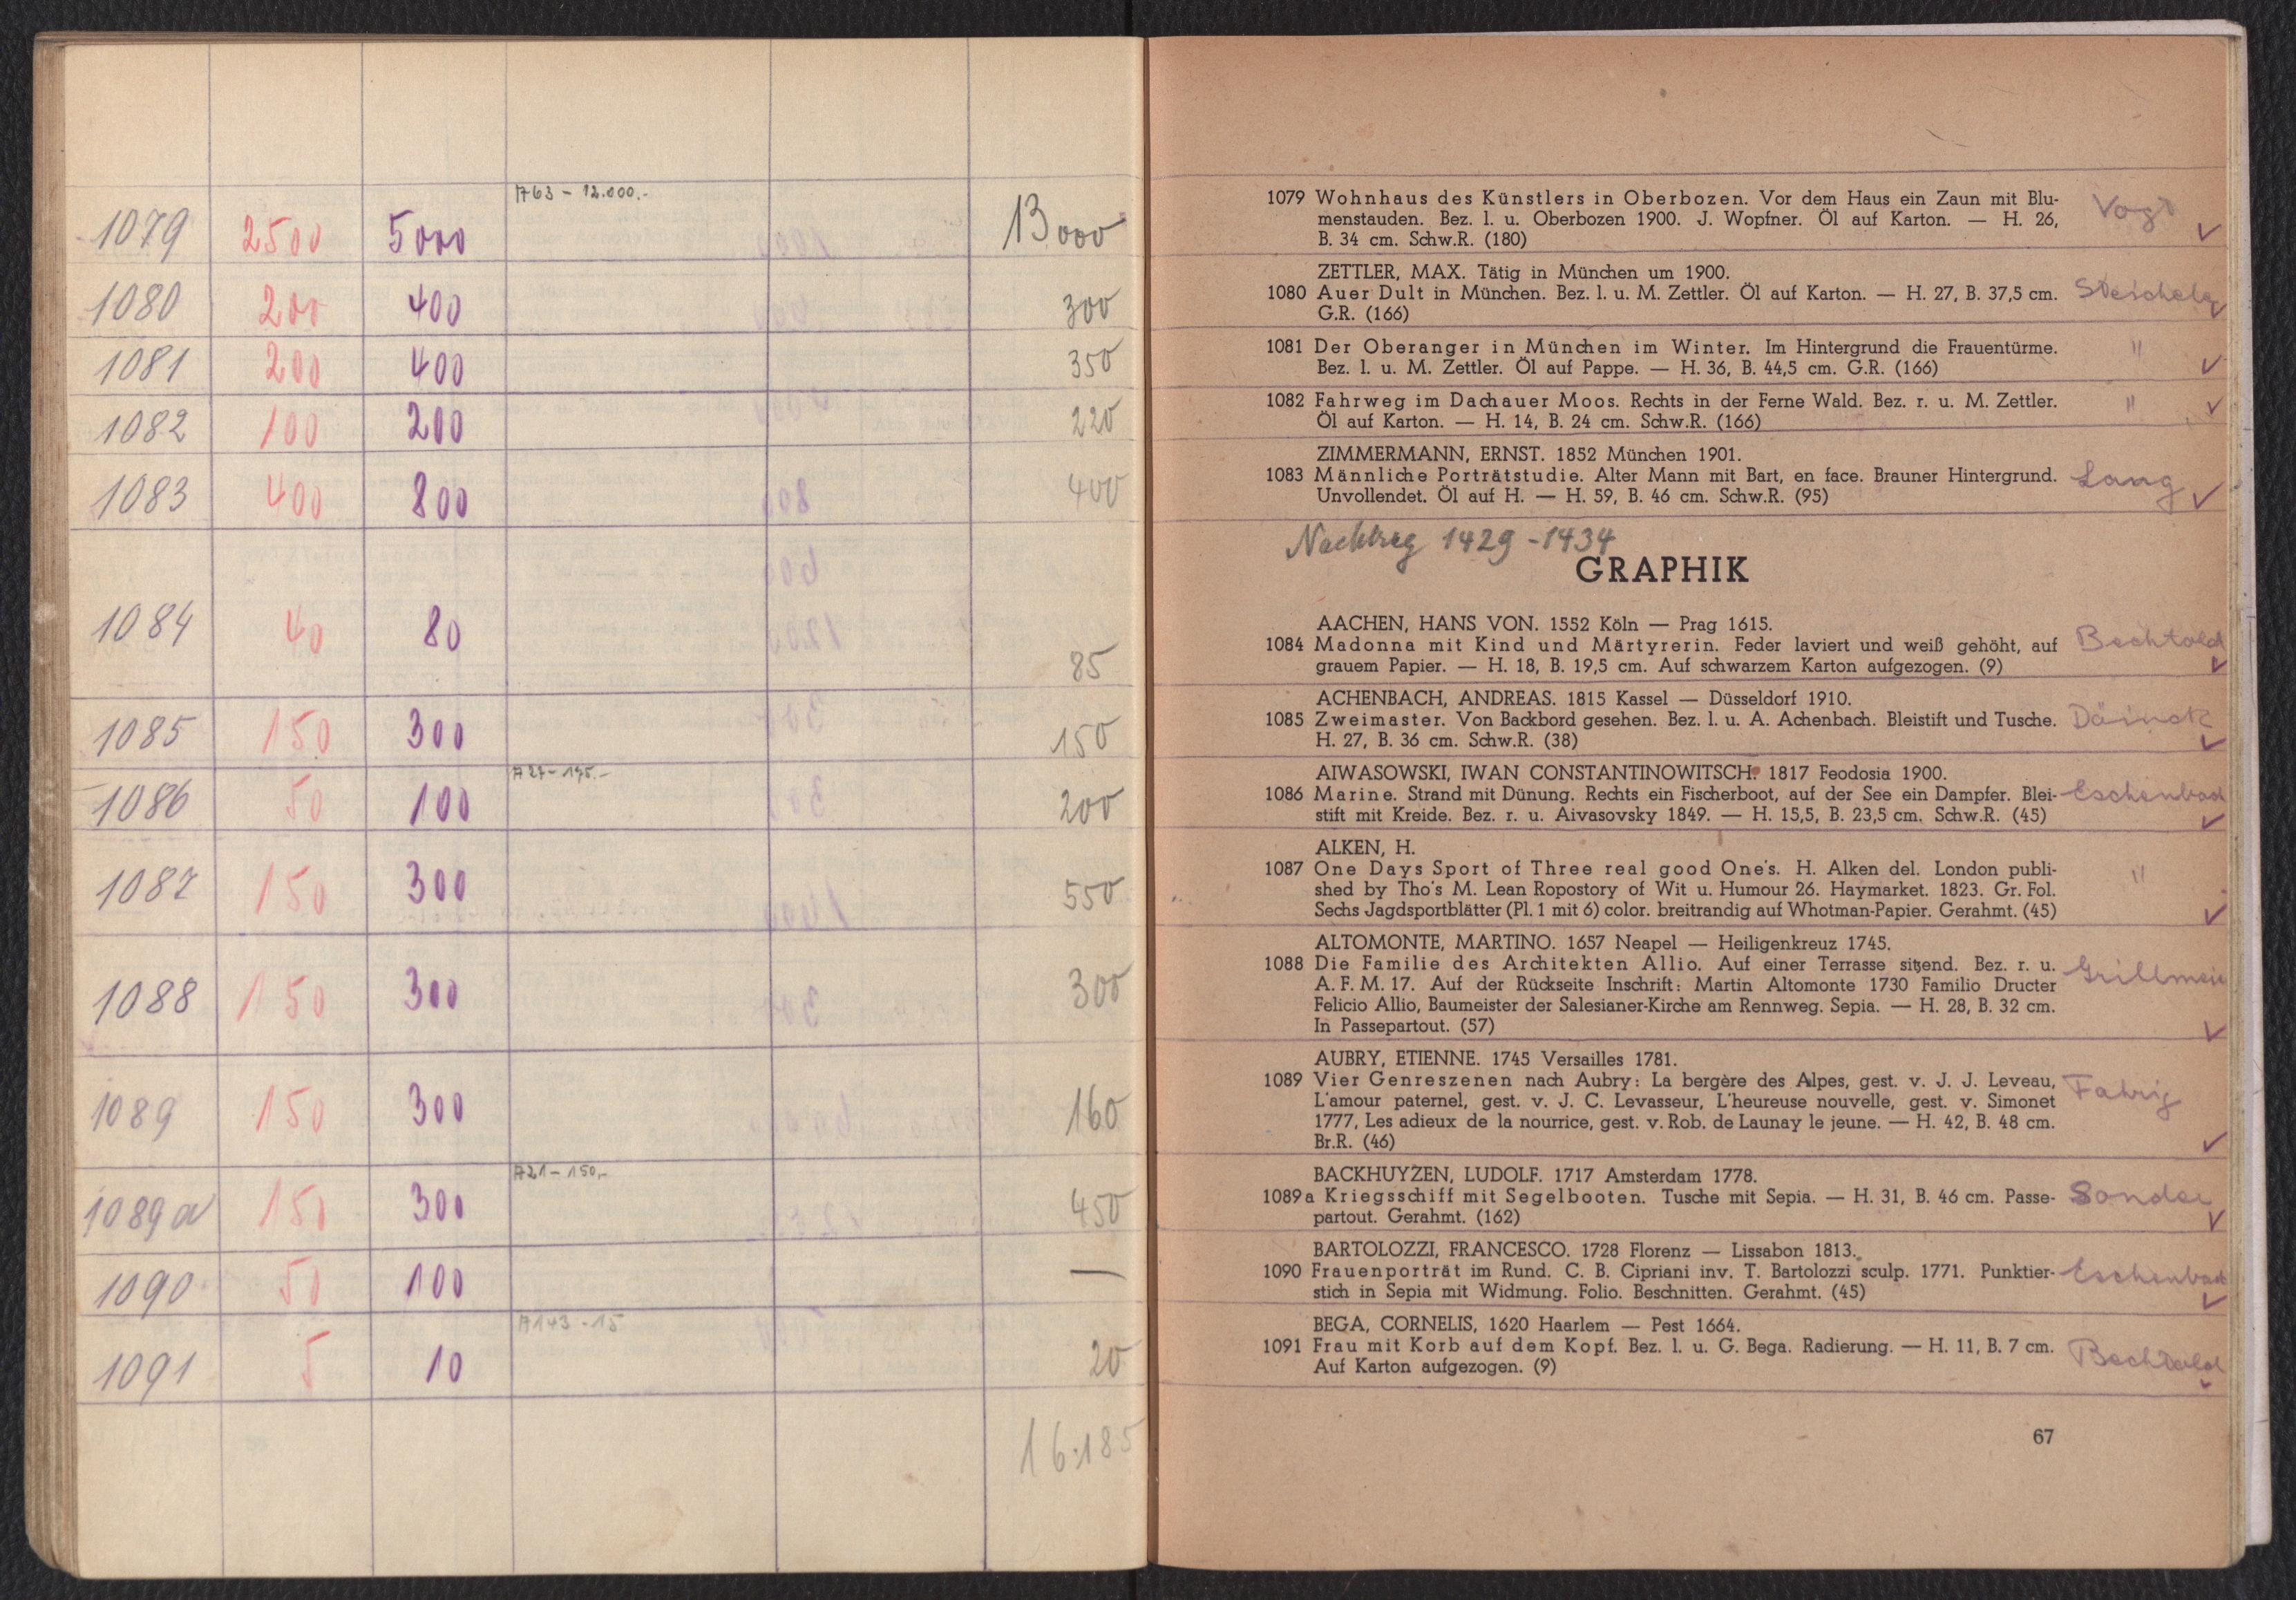 A63 – 12.000.-
1079 2500 5000 13000
1080 200 400 300
1081 200 400 350
1082 100 200 220
1083 400 800 400
1084 40 80 85
1085 150 300 150
A27 – 145.-
1086 50 100 200
1087 150 300 550
1088 150 300 300
1089 150 300 160
A21 – 150,-
1089a 150 300 450
1090 50 100 —
A143 - 15
1091 5 10 20
16.185
1079 Wohnhaus des Künstlers in Oberbozen. Vor dem Haus ein Zaun mit Blu-
menstauden. Bez. l. u. Oberbozen 1900. J. Wopfner. Öl auf Karton. — H. 26,
B. 34 cm. Schw.R. (180)
Vogt ✓
ZETTLER, MAX. Tätig in München um 1900.
1080 Auer Dult in München. Bez. l. u. M. Zettler. Öl auf Karton. — H. 27, B. 37,5 cm.
G.R. (166)
✓
1081 Der Oberanger in München im Winter. Im Hintergrund die Frauentürme.
Bez. l. u. M. Zettler. Öl auf Pappe. — H. 36, B. 44,5 cm. G.R. (166)
" ✓
1082 Fahrweg im Dachauer Moos. Rechts in der Ferne Wald. Bez. r. u. M. Zettler.
Öl auf Karton. — H. 14, B. 24 cm. Schw.R. (166)
" ✓
ZIMMERMANN, ERNST. 1852 München 1901.
1083 Männliche Porträtstudie. Alter Mann mit Bart, en face. Brauner Hintergrund.
Unvollendet. Öl auf H. — H. 59, B. 46 cm. Schw.R. (95)
Lang ✓
Nachtrag 1429 - 1434
GRAPHIK
AACHEN, HANS VON. 1552 Köln — Prag 1615.
1084 Madonna mit Kind und Märtyrerin. Feder laviert und weiß gehöht, auf
grauem Papier. — H. 18, B. 19,5 cm. Auf schwarzem Karton aufgezogen. (9)
Bechtold ✓
ACHENBACH, ANDREAS. 1815 Kassel — Düsseldorf 1910.
1085 Zweimaster. Von Backbord gesehen. Bez. l. u. A. Achenbach. Bleistift und Tusche.
H. 27, B. 36 cm. Schw.R. (38)
✓
AIWASOWSKI, IWAN CONSTANTINOWITSCH. 1817 Feodosia 1900.
1086 Marine. Strand mit Dünung. Rechts ein Fischerboot, auf der See ein Dampfer. Blei-
stift mit Kreide. Bez. r. u. Aivasovsky 1849. — H. 15,5, B. 23,5 cm. Schw.R. (45)
Eschenbach ✓
ALKEN, H.
1087 One Days Sport of Three real good One's. H. Alken del. London publi-
shed by Tho's M. Lean Ropostory of Wit u. Humour 26. Haymarket. 1823. Gr. Fol.
Sechs Jagdsportblätter (Pl. 1 mit 6) color. breitrandig auf Whotman-Papier. Gerahmt. (45)
" ✓
ALTOMONTE, MARTINO. 1657 Neapel — Heiligenkreuz 1745.
1088 Die Familie des Architekten Allio. Auf einer Terrasse sitzend. Bez. r. u.
A. F. M. 17. Auf der Rückseite Inschrift: Martin Altomonte 1730 Familio Dructer
Felicio Allio, Baumeister der Salesianer-Kirche am Rennweg. Sepia. — H. 28, B. 32 cm.
In Passepartout. (57)
Grillmeie ✓
AUBRY, ETIENNE. 1745 Versailles 1781.
1089 Vier Genreszenen nach Aubry: La bergère des Alpes, gest. v. J. J. Leveau,
L'amour paternel, gest. v. J. C. Levasseur, L'heureuse nouvelle, gest. v. Simonet
1777, Les adieux de la nourrice, gest. v. Rob. de Launay le jeune. — H. 42, B. 48 cm.
Br.R. (46)
Fahrig ✓
BACKHUYZEN, LUDOLF. 1717 Amsterdam 1778.
1089a Kriegsschiff mit Segelbooten. Tusche mit Sepia. — H. 31, B. 46 cm. Passe-
partout. Gerahmt. (162)
Sonder ✓
BARTOLOZZI, FRANCESCO. 1728 Florenz — Lissabon 1813.
1090 Frauenporträt im Rund. C. B. Cipriani inv. T. Bartolozzi sculp. 1771. Punktier-
stich in Sepia mit Widmung. Folio. Beschnitten. Gerahmt. (45)
Eschenbach ✓
BEGA, CORNELIS, 1620 Haarlem — Pest 1664.
1091 Frau mit Korb auf dem Kopf. Bez. l. u. G. Bega. Radierung. — H. 11, B. 7 cm.
Auf Karton aufgezogen. (9)
Bechtold ✓
67